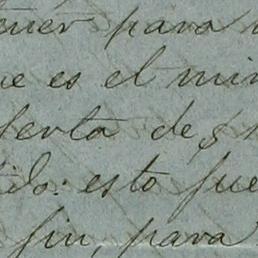 ener para
ue es el min
ferta de $
tido: esto fue
fin, para